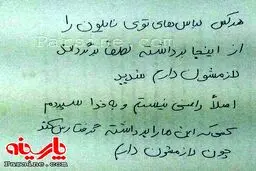 هرکس لباس‌های توی نایلون را
از اینجا برداشته لطفا برگرداند
لازمشون دارم ندید
اصلاً راضی نیستم و به خدا سپردم
کسی که این ها را برداشته گرفتارش کند
چون لازمشون دارم
پارسینه
Parsine.com